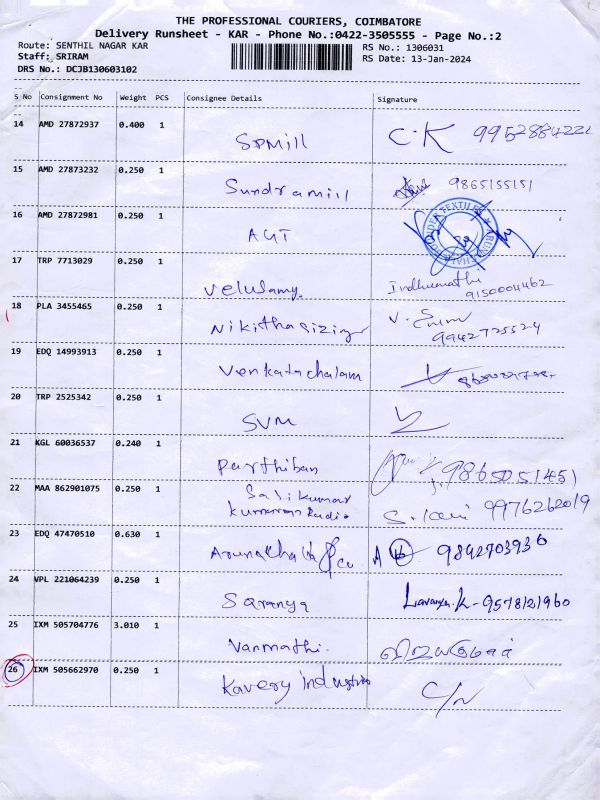 THE PROFESSIONAL COURIERS, COIMBATORE
Delivery Runsheet - KAR - Phone No.:0422-3505555 - Page No.:2
Route: SENTHIL NAGAR KAR RS No.: 1306031
Staff: SRIRAM RS Date: 13-Jan-2024
DRS No.: DCJB130603102
S No Consignment No Weight PCS Consignee Details Signature
14 AMD 27872937 0.400 1 SPMill C.K 9952884221
15 AMD 27873232 0.250 1 Sundramill 9865155151
16 AMD 27872981 0.250 1 AGT
17 TRP 7713029 0.250 1 Velusamy Indhumathi
9150004462
18 PLA 3455465 0.250 1 Nikithasizing V.
9942725524
19 EDQ 14993913 0.250 1 Venkatachalam
20 TRP 2525342 0.250 1 SVM
21 KGL 60036537 0.240 1 Parthiban 9865051451
22 MAA 862901075 0.250 1 Salikumar
Kumaran Radio S. 9976262019
23 EDQ 47470510 0.630 1 Arunachala & Co A 9842703936
24 VPL 221064239 0.250 1 Saranya Lavanya.K - 9578121960
25 IXM 505704776 3.010 1 Vanmathi.
26 IXM 505662970 0.250 1 Kavery industries C/N